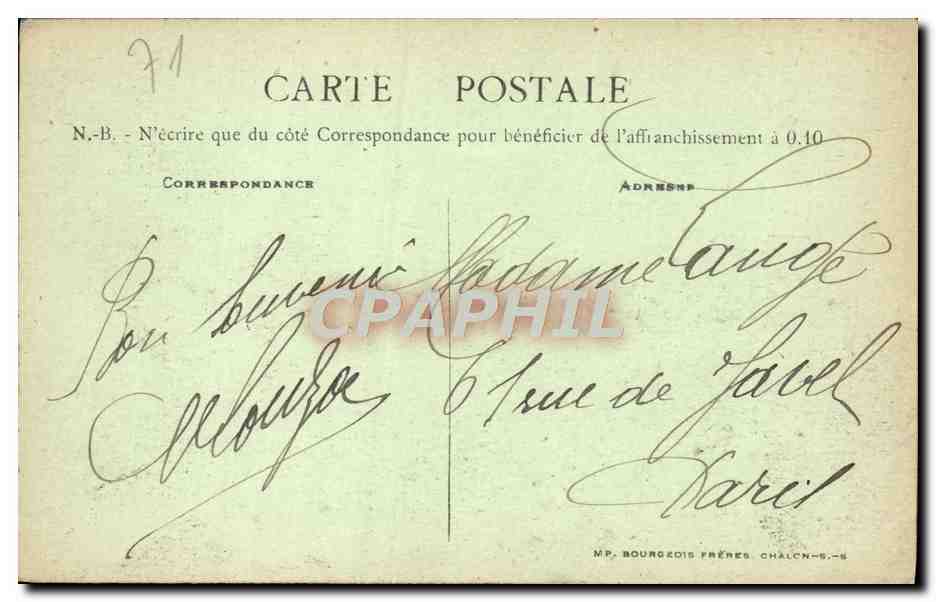 71
CARTE POSTALE
N.-B. - N'écrire que du côté Correspondance pour bénéficier de l'affranchissement à 0.10
CORRESPONDANCE
ADRESSE
Bon Souvenir
Madame Laugé
61 rue de Javel
Paris
CPAPHIL
IMP. BOURGEOIS FRÈRES, CHALON-S.-S